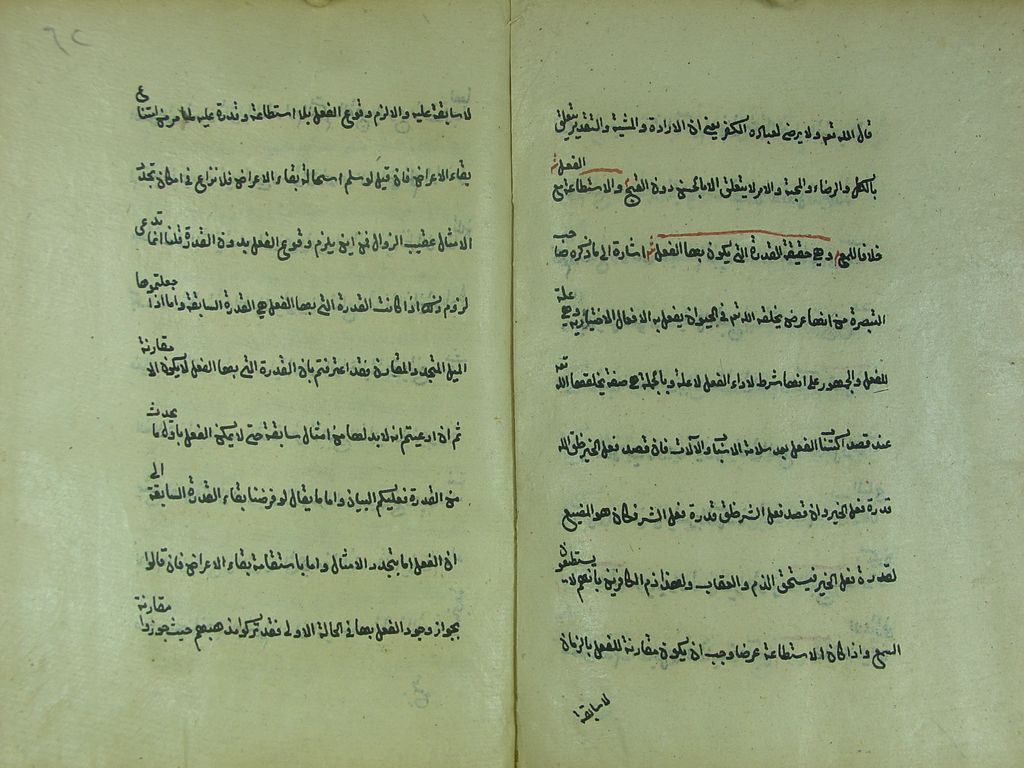 قال الله تع ولا يرضى لعباده الكفر يعني ان الارادة والمشية والتقدير يتعلق
بالكل والرضاء والمحبة والامر لا يتعلق الا بالحسن دون القبيح والاستطاعة مع الفعل
خلافا للمع وهي حقيقة القدرة التي يكون بها الفعل اشارة الى ما ذكره صاحب
التبصرة من انها عرض يخلقه الله تع في الحيوان يفعل به الافعال الاختيارية وهي علة
للفعل والجمهور على انها شرط لاداء الفعل لا علة وبالجملة هي صفة يخلقها الله تع
عند قصد اكتساب الفعل بعد سلامة الاسباب والآلات فان قصد فعل الخير خلق الله
قدرة فعل الخير وان قصد فعل الشر خلق قدرة فعل الشر فكان هو المضيع
لقدرة فعل الخير فيستحق الذم والعقاب ولهذا ذم الكافرين بانهم لا يستطيعون
السمع واذا كان الاستطاعة عرضا وجب ان يكون مقارنة للفعل بالزمان
لا سابقة
٦٢
لا سابقة عليه والا لزم وقوع الفعل بلا استطاعة وقدرة عليه لما مر من امتناع
بقاء الاعراض فان قيل لو سلم استحالة بقاء الاعراض فلا نزاع في امكان تجدد
الامثال عقيب الزوال فمن اين يلزم وقوع الفعل بدون القدرة قلنا انما ندعى
لزوم ذلك اذا كانت القدرة التي بها الفعل هي القدرة السابقة واما اذا جعلتموها
المثل المتجدد المقارن فقد اعترفتم بان القدرة التي بها الفعل لا يكون الا مقارنة
ثم ان ادعيتم انه لا بد لها من امثال سابقة حتى لا يمكن الفعل باول ما يحدث
من القدرة فعليكم البيان واما ما يقال لو فرضنا بقاء القدرة السابقة الى
ان الفعل اما بتجدد الامثال واما باستقامة بقاء الاعراض فان قالوا
بجواز وجود الفعل بها في الحالة الاولى فقد تركوا مذهبهم حيث جوزوا مقارنة